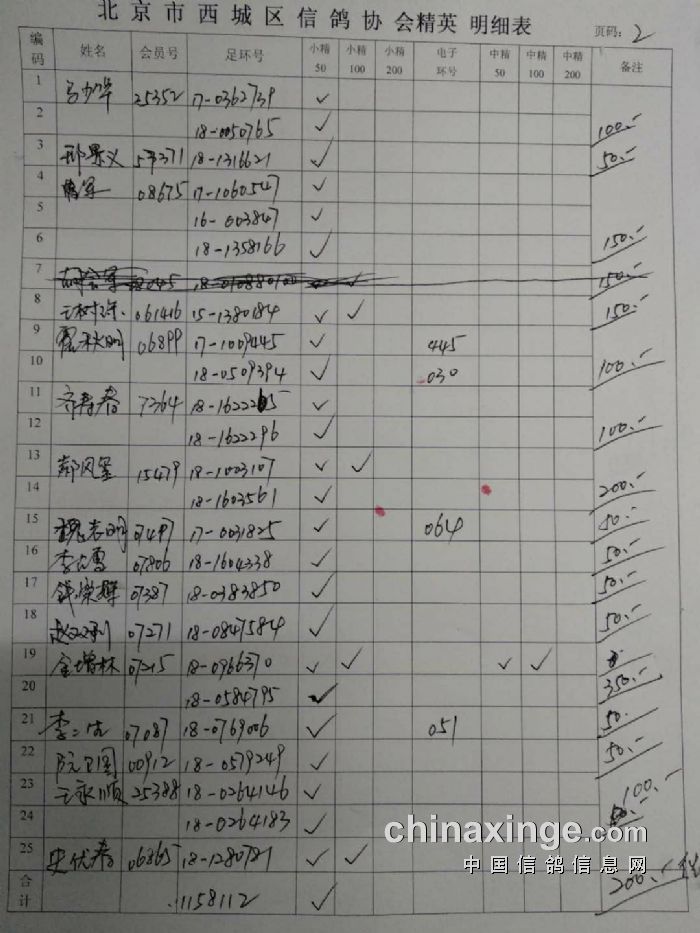 北京市西城区信鸽协会精英明细表
页码：2
编码 姓名 会员号 足环号 小精50 小精100 小精200 电子环号 中精50 中精100 中精200 备注
1 25352 17-0362739 ✓
2 18-0050765 ✓ 100.-
3 邢景义 18-1316621 ✓ 50.-
4 08675 17-1060547 ✓
5 16-003847 ✓
6 18-1358166 ✓ 150.-
7 150.-
8 061416 15-1380184 ✓ ✓ 150.-
9 翟秋明 06899 17-1009445 ✓ 445
10 18-0509394 ✓ 030 100.-
11 齐寿春 7364 ✓
12 18-1622296 ✓ 100.-
13 郝风玺 15479 18-1003107 ✓ ✓
14 18-1603561 ✓ 200.-
15 魏志明 07497 17-0031825 ✓ 064 50.-
16 07806 18-1604338 ✓ 50.-
17 钱荣辉 07387 18-0383850 ✓ 50.-
18 赵双利 07271 18-0847584 ✓ 50.-
19 金增林 07215 18-0966370 ✓ ✓ ✓ ✓
20 18-0584795 ✓ 350.-
21 07087 18-0769006 ✓ 051 50.
22 阮卫国 00912 18-0579249 ✓ 50.-
23 王永顺 25388 18-0264146 ✓ 100.-
24 18-0264183 ✓
25 史伏春 06865 18-1280781 ✓ ✓
合计 1158112 ✓ 200.-
chinaxinge.com
中国信鸽信息网